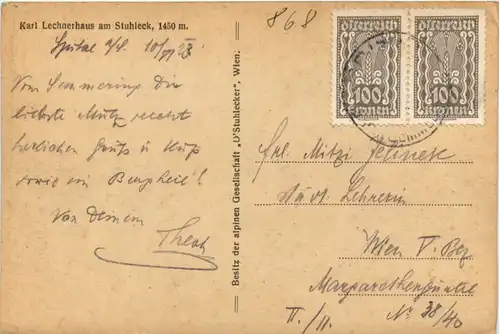 Karl Lechnerhaus am Stuhleck, 1450 m.
868
Spital a/S. 10/VI 23
Vom Semmering Dir
liebste Mitzi recht
herzlichen Gruß u Kuß
sowie ein Bergheil!
Von Deinem
Besitz der alpinen Gesellschaft „D'Stuhlecker", Wien.
Österreich Österreich
100 100
Kronen Kronen
Frl. Mitzi Jelinek
Städt. Lehrerin
Wien V. Bez.
Margarethengürtel
II./11. No 38/40